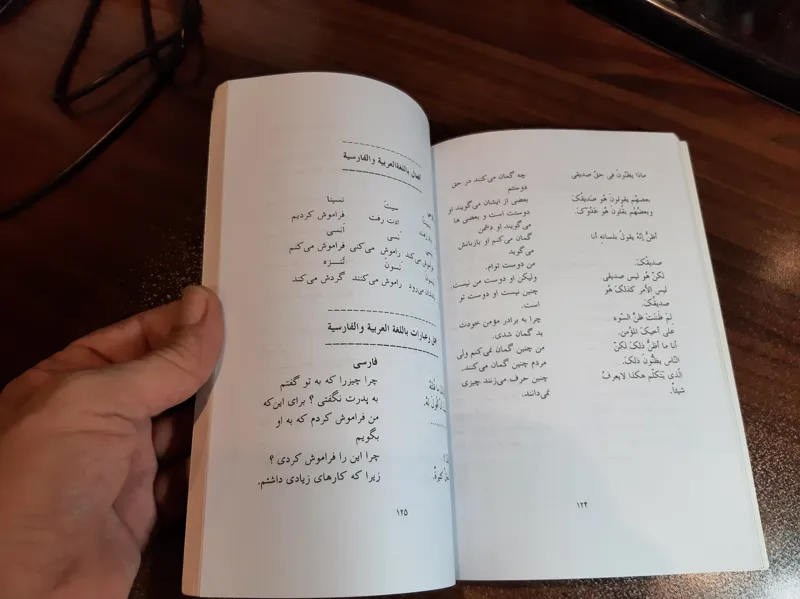 ماذا یظنّون فی حقّ صدیقی
بعضهُم یقولونَ هُو صَدیقُکَ
وبعضُهُم یقُلونَ هُو عَدُوکَ.
أظنُّ إنَّهُ یقولُ بلسانهِ أنا
صدیقُکَ.
لکنْ هوَ لیس صدیقی
لیس الأمر کذلکَ هُو
صدیقُکَ.
لِمَ ظَنَنتَ ظنَّ السّوءِ
علی أخیکَ المؤمن.
أنا ما أظنُّ ذلکَ لکنْ
النّاس یظنُّونَ ذلکَ.
الّذی یَتکلّم هکذا لایَعرفُ
شیئاً.
چه گمان می‌کنند در حق
دوستم
بعضی از ایشان می‌گویند او
دوستت است و بعضی ها
می‌گویند او دشمن
گمان می‌کنم او بازبانش
می‌گوید
من دوست توام.
ولیکن او دوست من نیست.
چنین نیست او دوست تو
است.
چرا به برادر مؤمن خودت
بد گمان شدی.
من چنین گمان نمی‌کنم ولی
مردم چنین گمان می‌کنند.
چنین حرف می‌زنند چیزی
نمی‌دانند.
۱۲۴
أفعال باللغةالعربیة والفارسیة
نسیتَ نسینا
ادت رفت فراموش کردیم
نْسی أنسی
راموش می‌کنی فراموش می‌کنم
نسونَ تُننزه
راموش می‌کنند گردش می‌کند
مل وعبارات باللغة العربیة والفارسیة
فارسی
چرا چیزرا که به تو گفتم
به پدرت نگفتی ؟ برای این‌که
من فراموش کردم که به او
بگویم
چرا این را فراموش کردی ؟
زیرا که کارهای زیادی داشتم.
۱۲۵